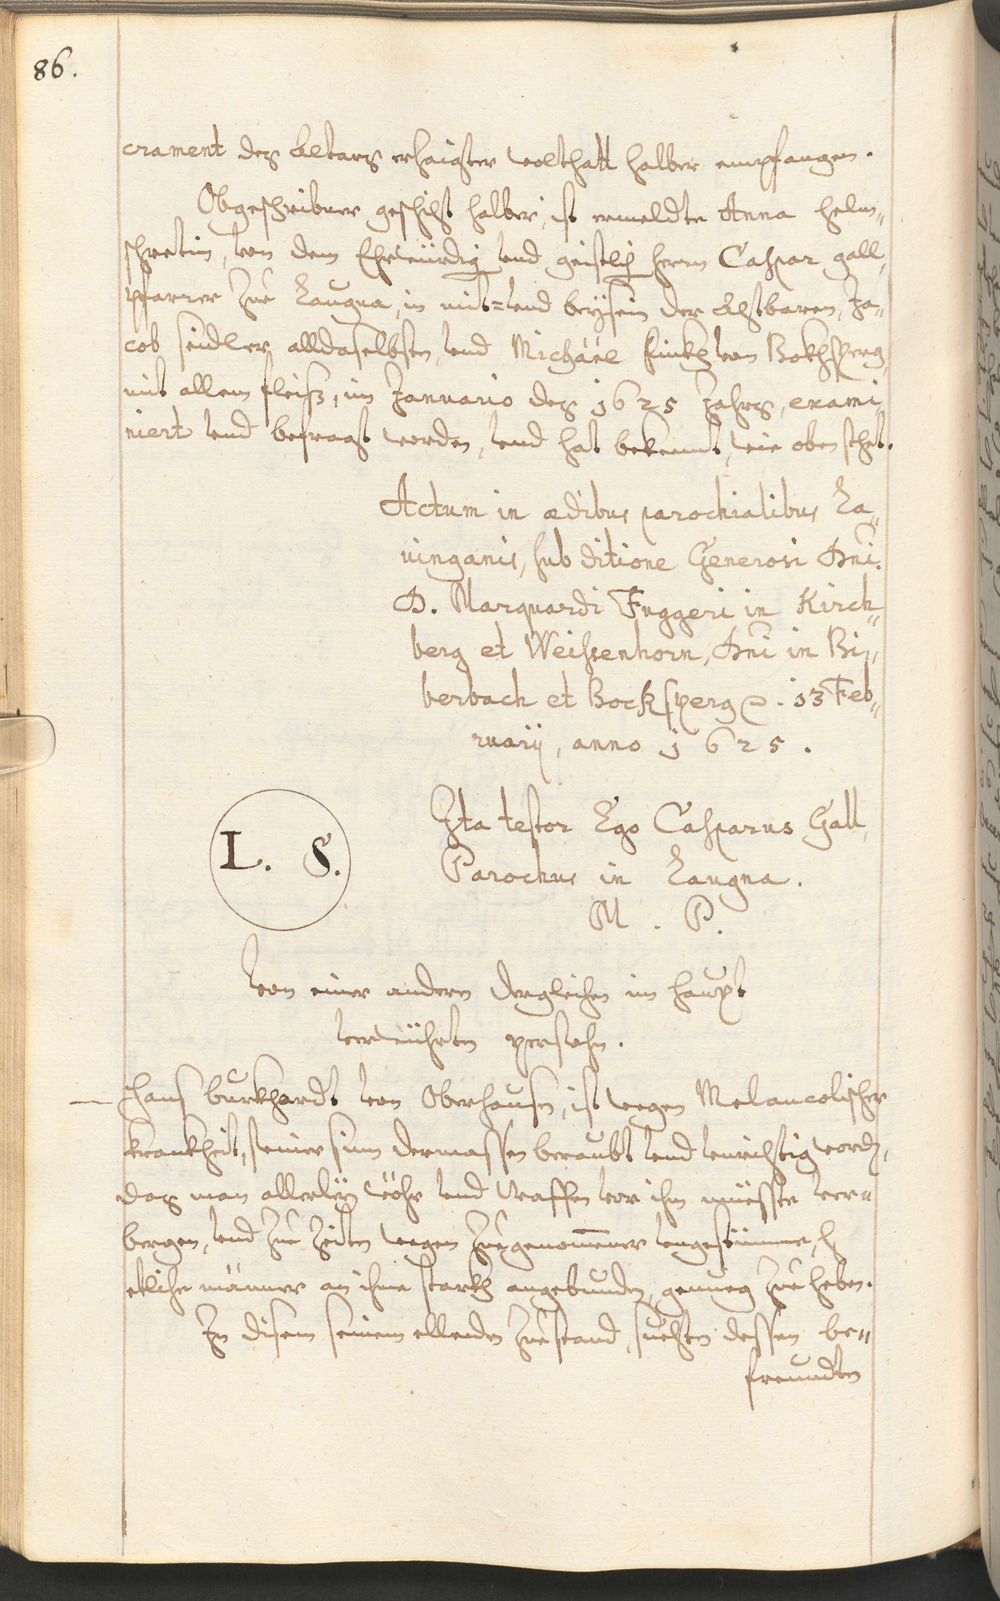 86.
crament des Altars erhaigter wolthatt halber empfangen.
Obgeschribner geschicht halber, ist ermeldte Anna Helm„
schrotin, von dem Ehrwürdig vnd geistlich herrn Caspar gall,
pfarrer zue Laugna, in mit= vnd beysein der Achtbaren, Ja„
cob seidler alldaselbsten, vnd Michaël finkh von Bokhsperg,
mit allem fleiß, im Januario des 1625 Jahrs, exami„
niert vnd befragt worden, vnd hat bekennt, wie oben steht.
Actum in ædibus parochialibus La„
uinganis, sub ditione Generosi Dni.
D. Marquardi Fuggeri in Kirch„
berg et Weissenhorn, Dni in Bi„
berbach et Bocksperg. 13 Feb„
ruarij, anno 1625.
L. S.
Ita testor Ego Casparus Gall,
Parochus in Laugna.
M. P.
Von einer andern dergleichen im haupt
verwührten persohn.
Hans burkhardt von Oberhausen, ist wegen Melancolischer
krankheit, seiner sinn dermassen beraubt vnd vnrichtig word,
das man allerley wöhr vnd Waffen vor ihm müeste ver„
bergen, vnd zue Zeiten wegen zuegenommener vngestümme,
etliche männer an ihme starkh angebunden, genueg zue heben.
In disem seinem ellenden Zuestand, suchten dessen be„
freundten